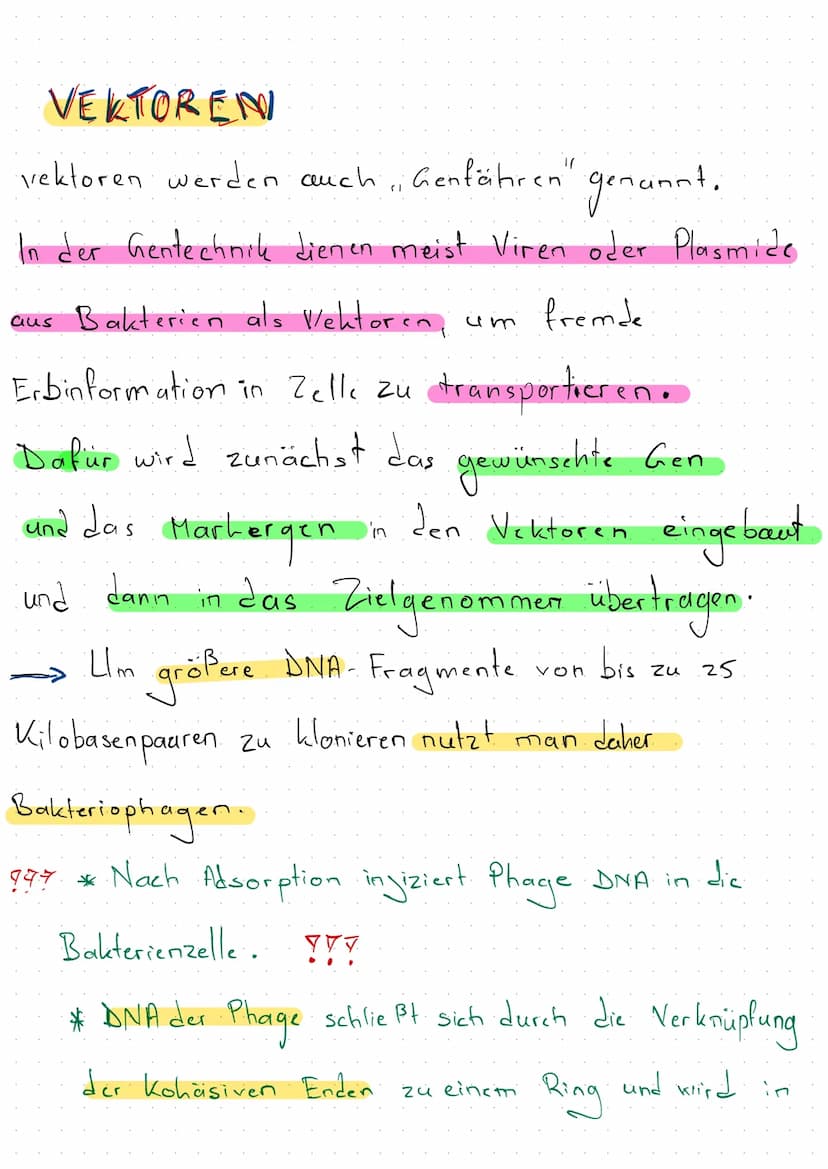 VEKTOREN
vektoren werden auch „Genfähren" genannt.
In der Gentechnik dienen meist Viren oder Plasmide
aus Bakterien als Vektoren, um fremde
Erbinformation in Zelle zu transportieren.
Dafür wird zunächst das gewünschte Gen
und das Markergen in den Vektoren eingebaut
und dann in das Zielgenommen übertragen.
→ Um größere DNA-Fragmente von bis zu 25
Kilobasenpaaren zu klonieren nutzt man daher
Bakteriophagen.
??? * Nach Adsorption injiziert Phage DNA in die
Bakterienzelle. !!!
* DNA der Phage schließt sich durch die Verknüpfung
der Kohäsiven Enden zu einem Ring und wird in